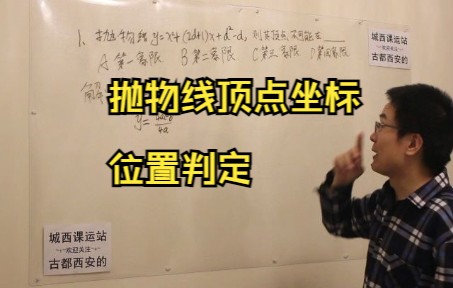 1、抛物线y=x²+(2a+1)x+a²-a,则其顶点不可能在____
A 第一象限 B 第二象限 C 第三象限 D 第四象限
解
抛物线顶点坐标
位置判定
城西课运站
欢迎关注
古都西安的
城西课运站
欢迎关注
古都西安的